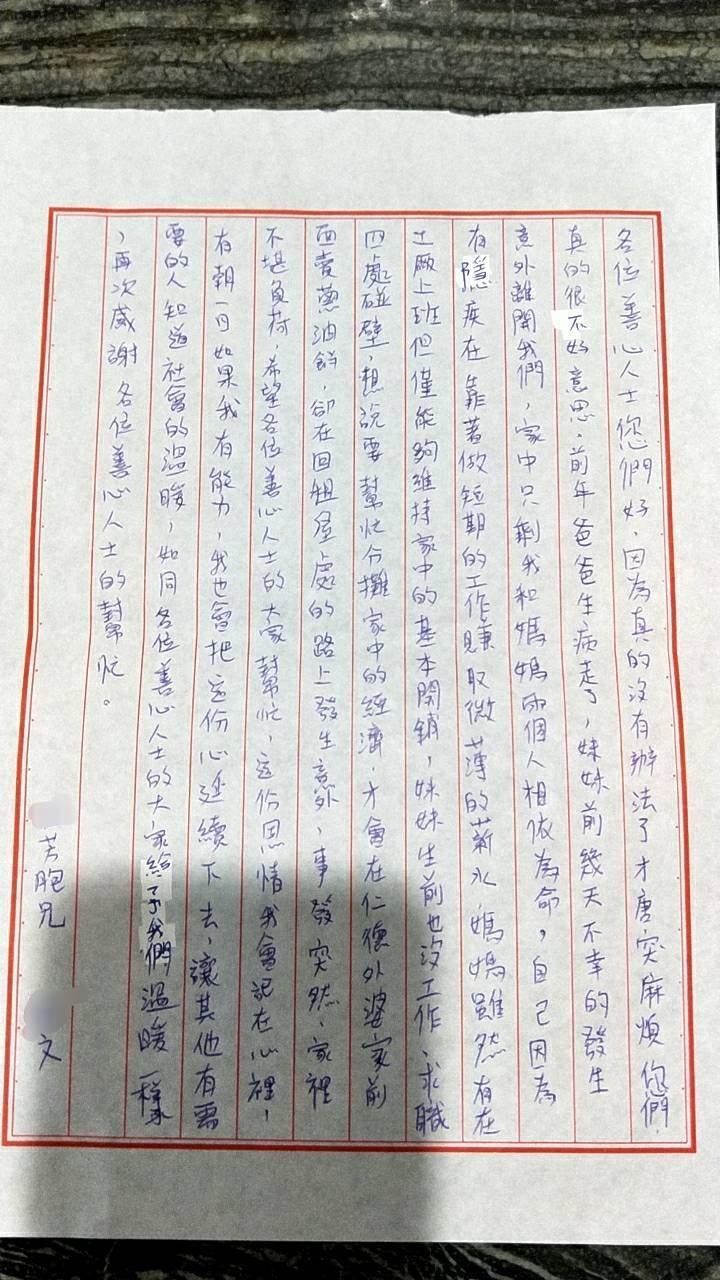 各位善心人士您們好,因為真的沒有辦法了才唐突麻煩您們.
真的很不好意思.前年爸爸生病走了,妹妹前幾天不幸的發生
意外離開我們,家中只剩我和媽媽兩個人相依為命,自己因為
有隱疾在靠著做短期的工作賺取微薄的薪水,媽媽雖然有在
工廠上班但僅能夠維持家中的基本開銷,妹妹生前也沒工作、求職
四處碰壁,想說要幫忙分攤家中的經濟.才會在仁德外婆家前
面賣蔥油餅,卻在回租屋處的路上發生意外,事發突然、家裡
不堪負荷,希望各位善心人士的大家幫忙,這份恩情我會記在心裡,
有朝一日如果我有能力,我也會把這份心延續下去,讓其他有需
要的人知道社會的溫暖,如同各位善心人士的大家給予我們溫暖一樣
,再次感謝各位善心人士的幫忙。
芳胞兄 文